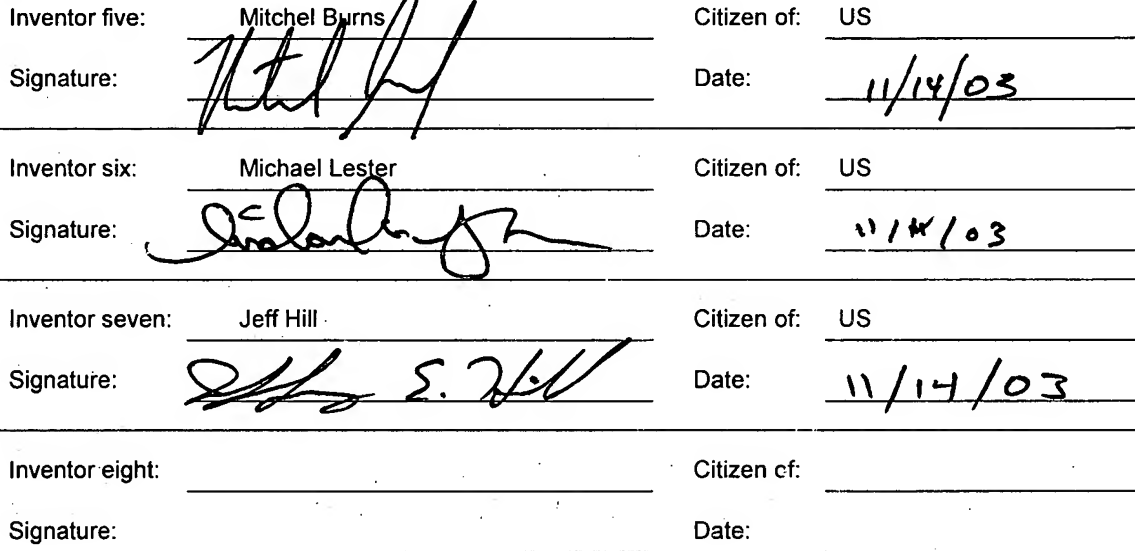 Inventor five: Mitchel Burns Citizen of: US
Signature: Date: 11/14/03
Inventor six: Michael Lester Citizen of: US
Signature: Date: 11/14/03
Inventor seven: Jeff Hill Citizen of: US
Signature: E. Hill Date: 11/14/03
Inventor eight: Citizen of:
Signature: Date: